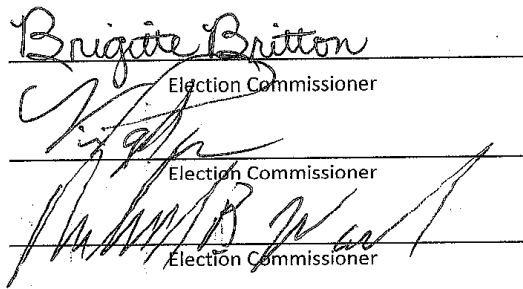 Brigitte Britton
Election Commissioner
Election Commissioner
B Ward
Election Commissioner